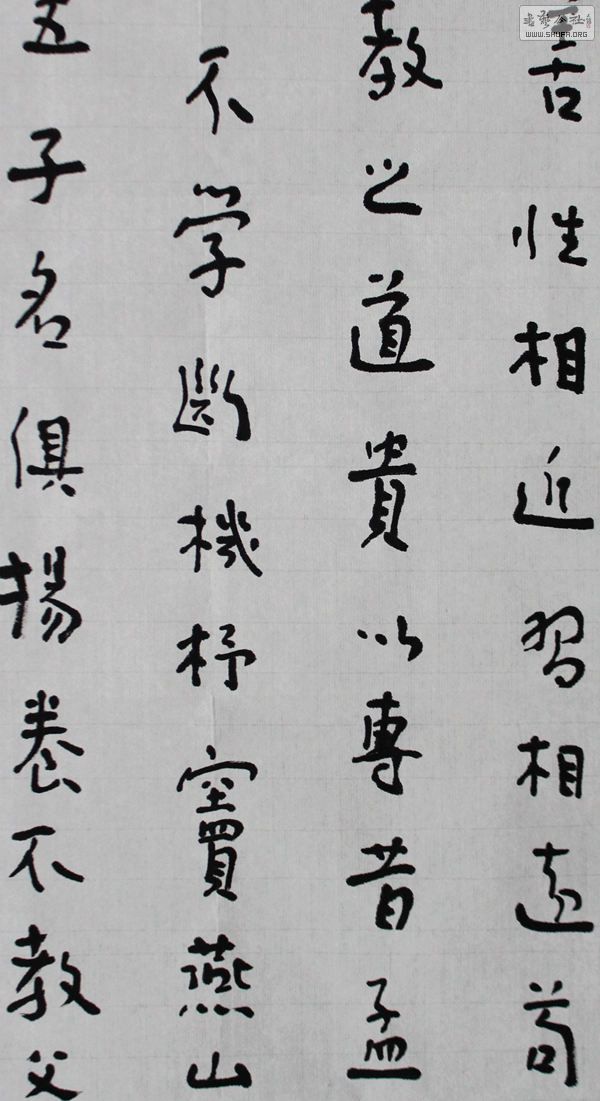 善性相近習相遠苟
教之道貴以專昔孟
不學斷機杼竇燕山
五子名俱揚養不教父
书艺公社
WWW.SHUFA.ORG